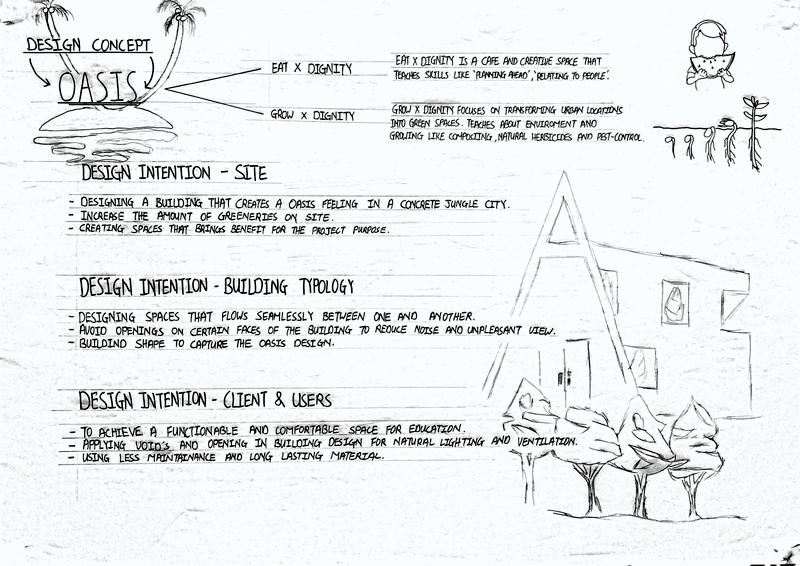 DESIGN CONCEPT
OASIS
EAT X DIGNITY
EAT X DIGNITY IS A CAFE AND CREATIVE SPACE THAT
TEACHES SKILLS LIKE 'PLANNING AHEAD', 'RELATING TO PEOPLE'.
GROW X DIGNITY
GROW X DIGNITY FOCUSES ON TRANSFORMING URBAN LOCATIONS
INTO GREEN SPACES. TEACHES ABOUT ENVIROMENT AND
GROWING LIKE COMPOSTING, NATURAL HERBICIDES AND PEST-CONTROL.
DESIGN INTENTION - SITE
- DESIGNING A BUILDING THAT CREATES A OASIS FEELING IN A CONCRETE JUNGLE CITY.
- INCREASE THE AMOUNT OF GREENERIES ON SITE.
- CREATING SPACES THAT BRINGS BENEFIT FOR THE PROJECT PURPOSE.
DESIGN INTENTION - BUILDING TYPOLOGY
- DESIGNING SPACES THAT FLOWS SEAMLESSLY BETWEEN ONE AND ANOTHER.
- AVOID OPENINGS ON CERTAIN FACES OF THE BUILDING TO REDUCE NOISE AND UNPLEASANT VIEW.
- BUILDIND SHAPE TO CAPTURE THE OASIS DESIGN.
DESIGN INTENTION - CLIENT & USERS
- TO ACHIEVE A FUNCTIONABLE AND COMFORTABLE SPACE FOR EDUCATION.
- APPLYING VOID'S AND OPENING IN BUILDING DESIGN FOR NATURAL LIGHTING AND VENTILATION.
- USING LESS MAINTAINANCE AND LONG LASTING MATERIAL.